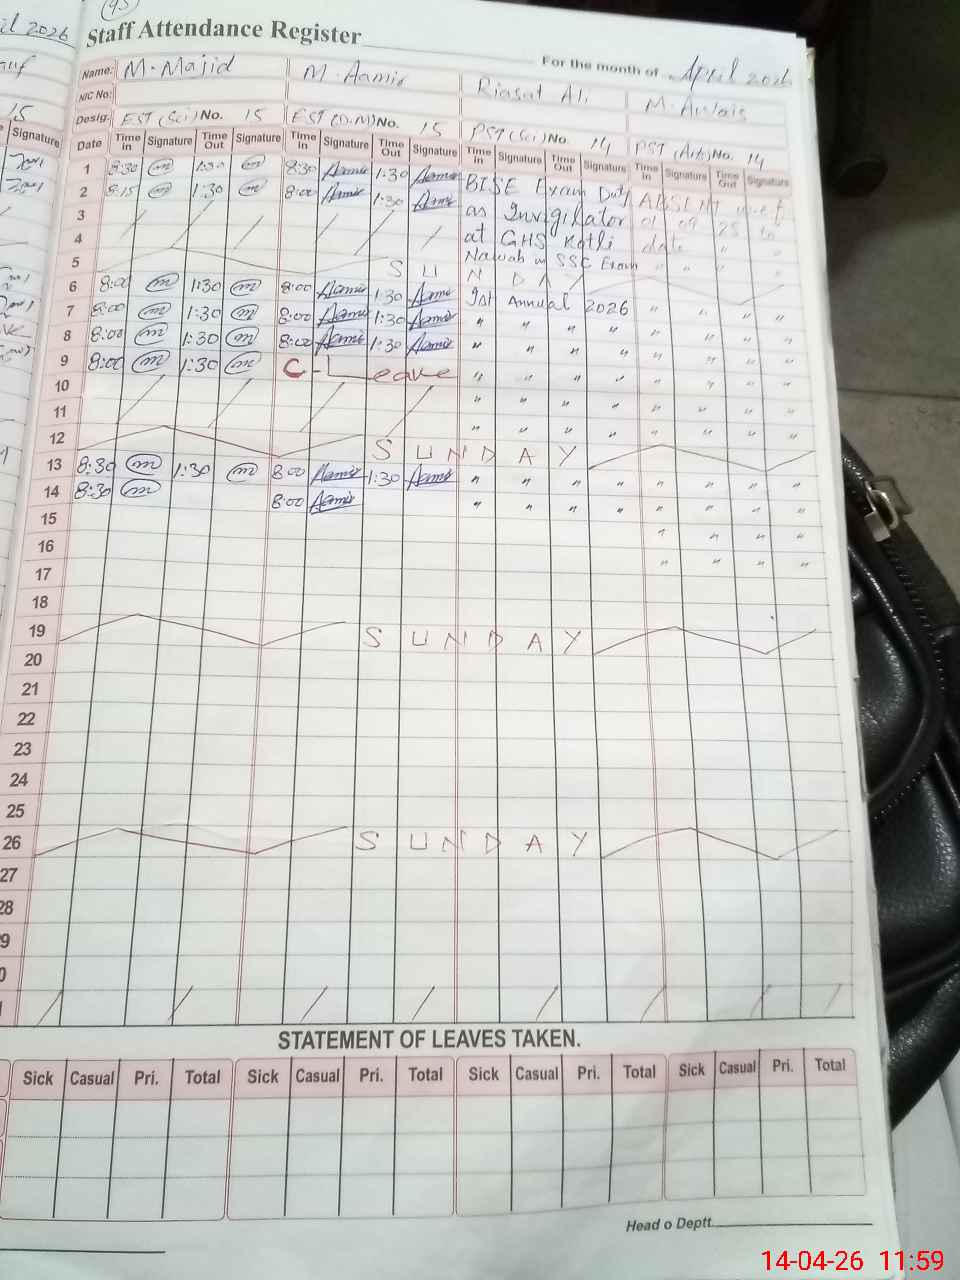 95
Staff Attendance Register
For the month of April 2026
Name: M. Majid M. Aamir Riasat Ali M. Awais
NIC No:
Desig. EST (Sci) No. 15 EST (D.M) No. 15 PST (Sci) No. 14 PST (Arts) No. 14
Date Time In Signature Time Out Signature Time In Signature Time Out Signature Time In Signature Time Out Signature Time In Signature Time Out Signature
1 8:30 m 1:30 m 8:30 Aamir 1:30 Aamir BISE Exam Duty ABSENT w.e.f
2 8:15 m 1:30 m 8:00 Aamir 1:30 Aamir as Invigilator 01 09 25 to
3 at GHS Kotli date "
4 Nawab in SSC Exam " " "
5 S U N D A Y
6 8:00 m 1:30 m 8:00 Aamir 1:30 Aamir 1st Annual 2026 " " " "
7 8:00 m 1:30 m 8:00 Aamir 1:30 Aamir " " " " " " " "
8 8:00 m 1:30 m 8:00 Aamir 1:30 Aamir " " " " " " " "
9 8:00 m 1:30 m C - Leave " " " " " " " "
10 " " " " " " " "
11 " " " " " " " "
12 S U N D A Y
13 8:30 m 1:30 m 8:00 Aamir 1:30 Aamir " " " " " " " "
14 8:30 m 8:00 Aamir " " " " " " " "
15 " " " "
16 " " " "
17
18
19 S U N D A Y
20
21
22
23
24
25
26 S U N D A Y
27
28
29
STATEMENT OF LEAVES TAKEN.
Sick Casual Pri. Total Sick Casual Pri. Total Sick Casual Pri. Total Sick Casual Pri. Total
Head o Deptt.
14-04-26 11:59